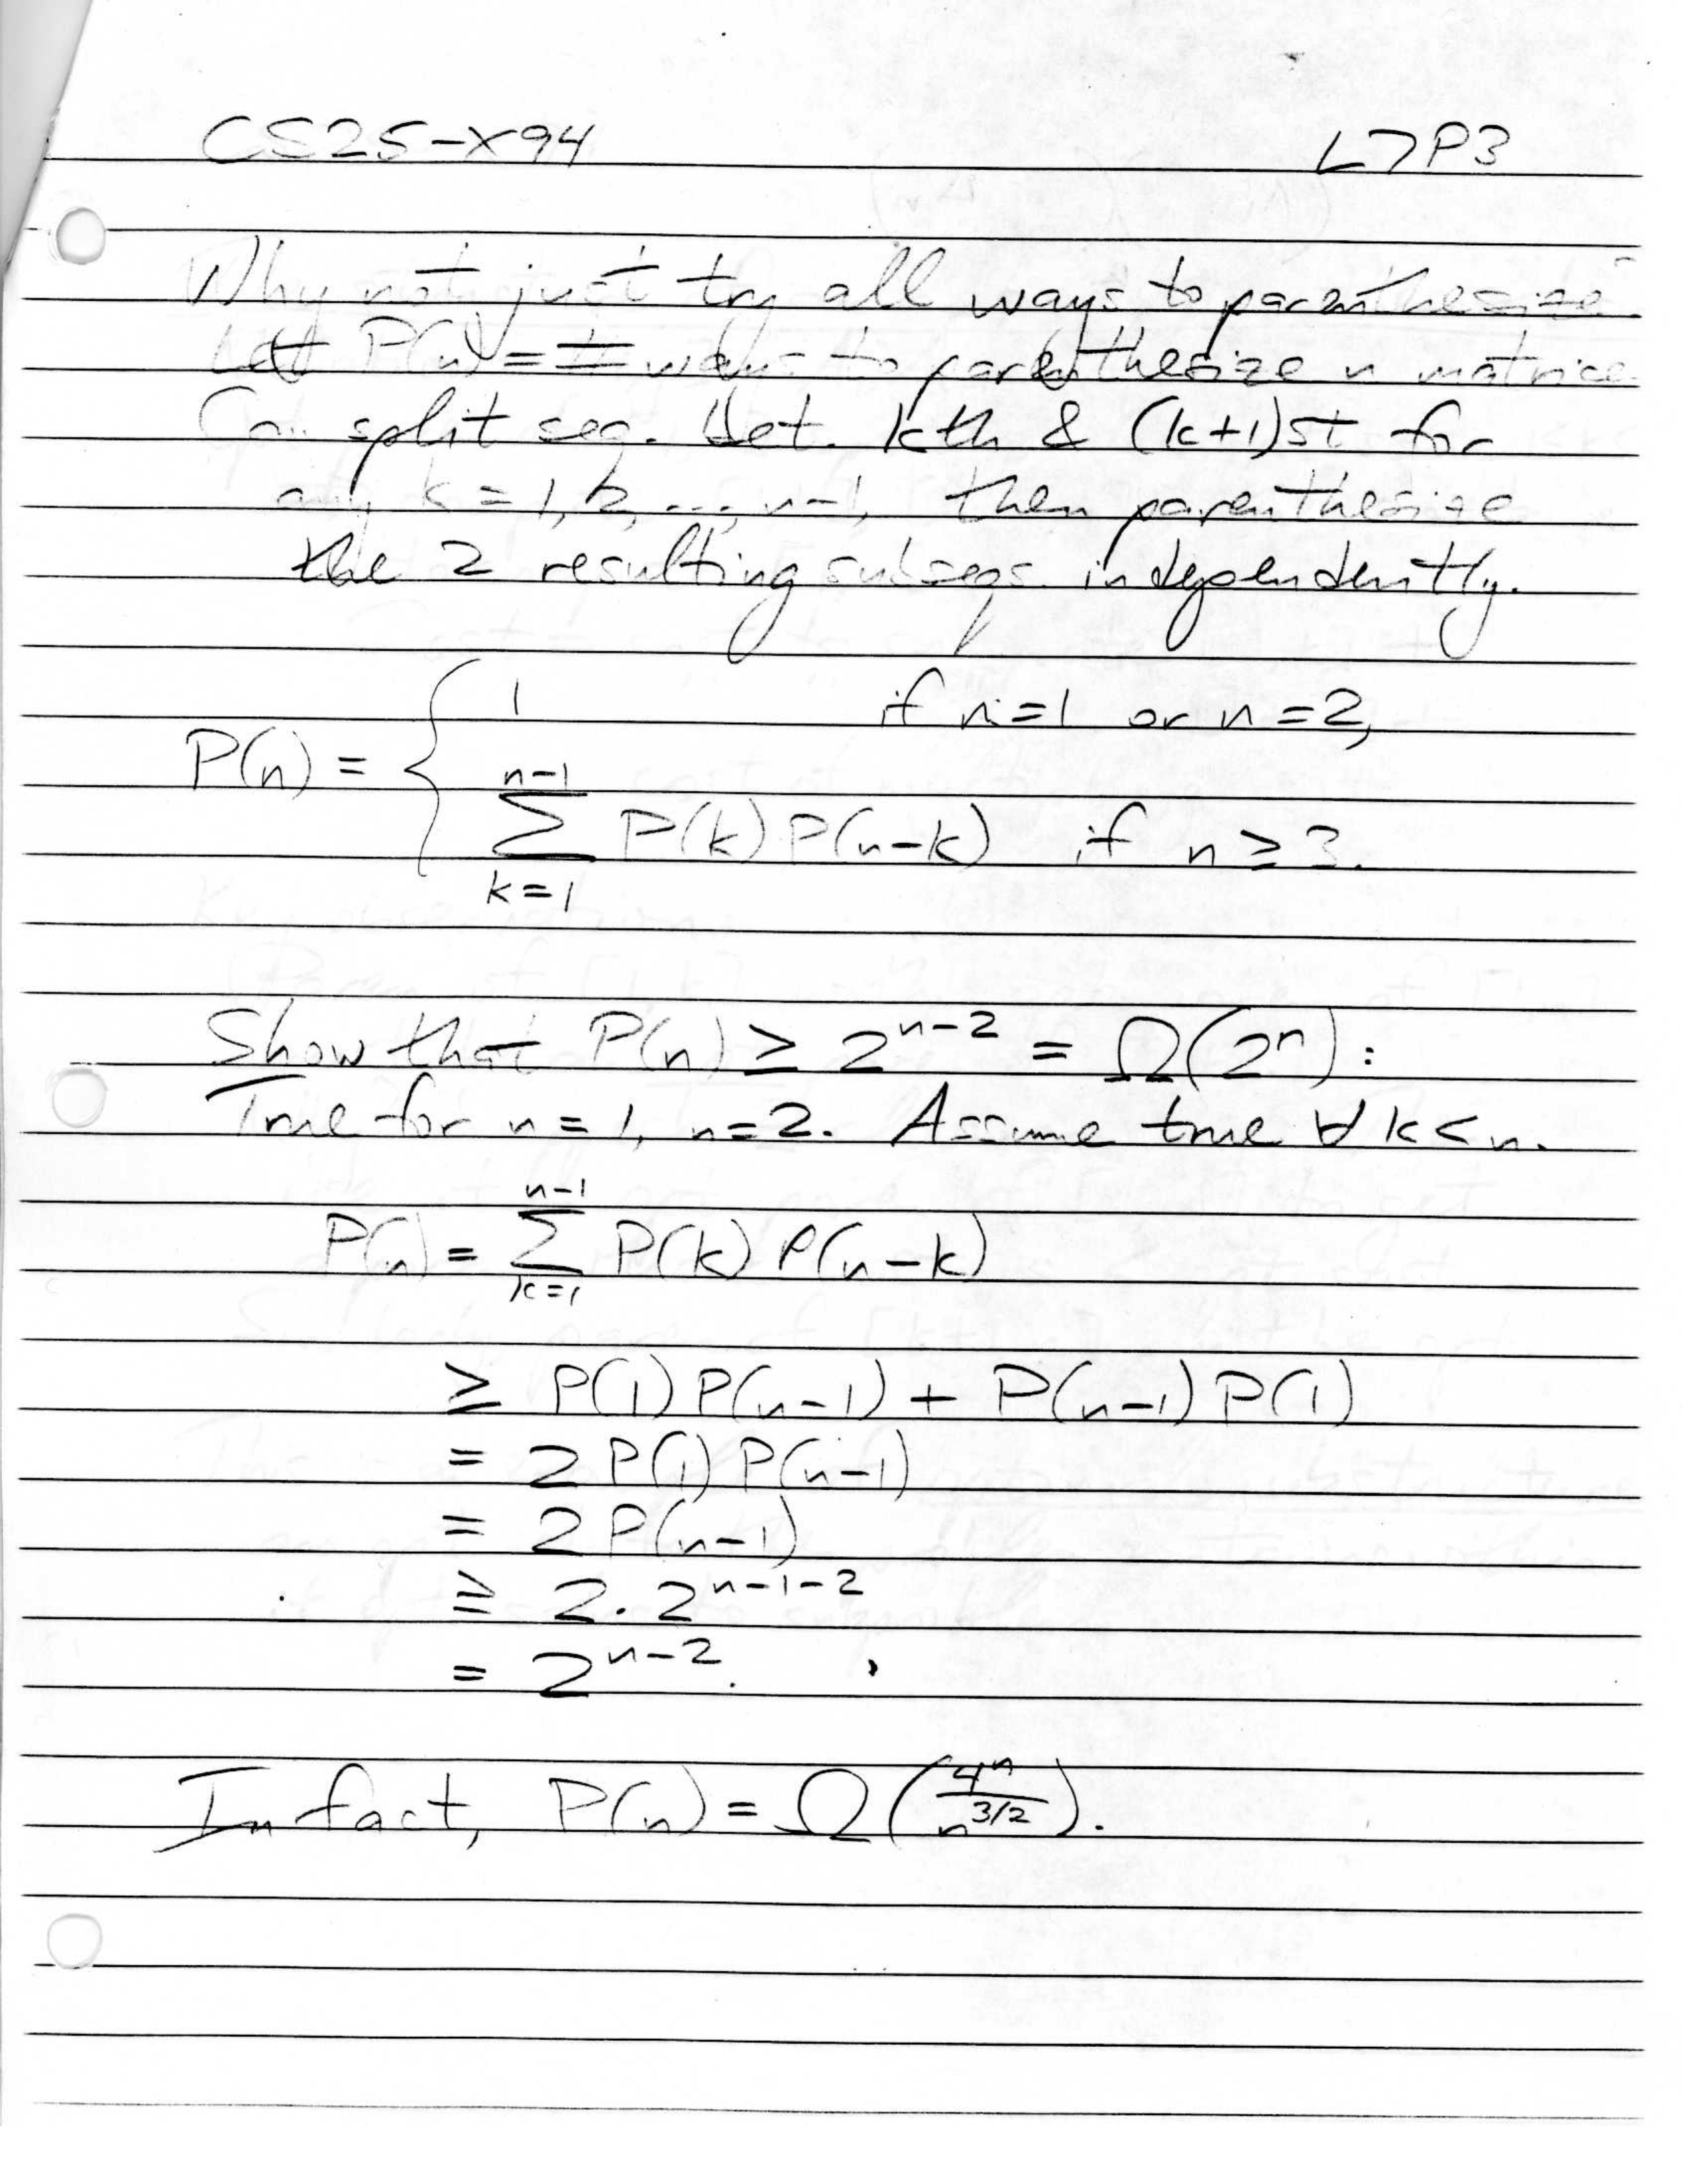 CS25-X94 L7P3
Why not just try all ways to parenthesize
Let P(n) = # ways to parenthesize n matrice
Can split seq. bet. kth & (k+1)st for
any k = 1, 2, ..., n-1, then parenthesize
the 2 resulting subseqs. independently.
P(n) = { 1 if n=1 or n=2,
∑_{k=1}^{n-1} P(k) P(n-k) if n ≥ 3.
Show that P(n) ≥ 2^{n-2} = Ω(2^n):
True for n=1, n=2. Assume true ∀ k<n.
P(n) = ∑_{k=1}^{n-1} P(k) P(n-k)
≥ P(1) P(n-1) + P(n-1) P(1)
= 2 P(1) P(n-1)
= 2 P(n-1)
≥ 2·2^{n-1-2}
= 2^{n-2}.
In fact, P(n) = Ω(4^n / n^{3/2}).